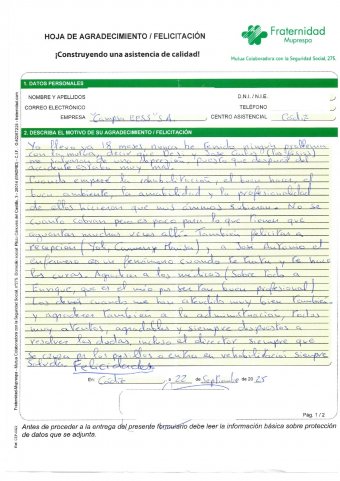 HOJA DE AGRADECIMIENTO / FELICITACIÓN
¡Construyendo una asistencia de calidad!
Fraternidad
Muprespa
Mutua Colaboradora con la Seguridad Social, 275.
1. DATOS PERSONALES
NOMBRE Y APELLIDOS
D.N.I. / N.I.E.
CORREO ELECTRÓNICO
TELÉFONO
EMPRESA "Campsa EESS" S.A.
CENTRO ASISTENCIAL Cádiz
2. DESCRIBA EL MOTIVO DE SU AGRADECIMIENTO / FELICITACIÓN
Yo llevo ya 18 meses nunca he tenido ningún problema
con la mutua, decir que y José Carlos
me de una depresión, puesto que después del
accidente estaba muy mal.
Cuando empecé la rehabilitación, el buen hacer, el
buen ambiente, la amabilidad y la profesionalidad
de ellos hicieron que mis ánimos subieran. No se
cuanto cobran pero es poco para lo que tienen que
aguantar muchas veces allí. También felicitar a
recepción ( ), y a José Antonio el
enfermero es un fenómeno cuando te trata y te hace
las curas. Agradecer a los médicos (sobre todo a
Enrique, que es el mío por ser tan buen profesional)
Los demás cuando me han atendido muy bien también.
y agradecer también a la administración, todos
muy atentos, agradables y siempre dispuestos a
resolver las dudas, incluso el director siempre que
se cruza por los pasillos o entra en rehabilitación siempre
saluda. Felicidades
En Cádiz, a 22 de Septiembre de 2025
Pág. 1 / 2
Antes de proceder a la entrega del presente formulario debe leer la información básica sobre protección
de datos que se adjunta.